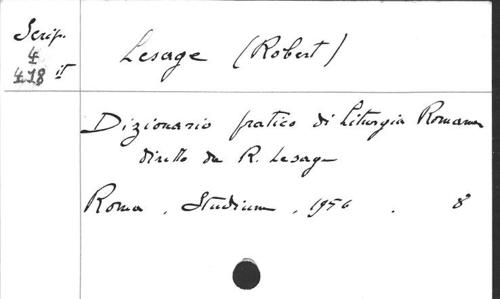 Scrip.
4
418 it
Lesage (Robert)
Dizionario pratico di Liturgia Romana
diretto da R. Lesage
Roma, Studium, 1956. 8